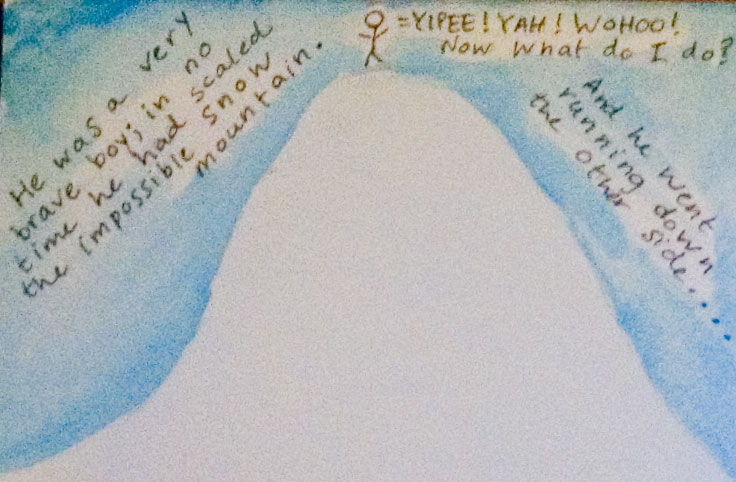 He was a very
brave boy; in no
time he had scaled
the impossible snow
mountain.
=YIPEE! YAH! WOHOO!
Now what do I do?
And he went
running down
the other side. . . . .